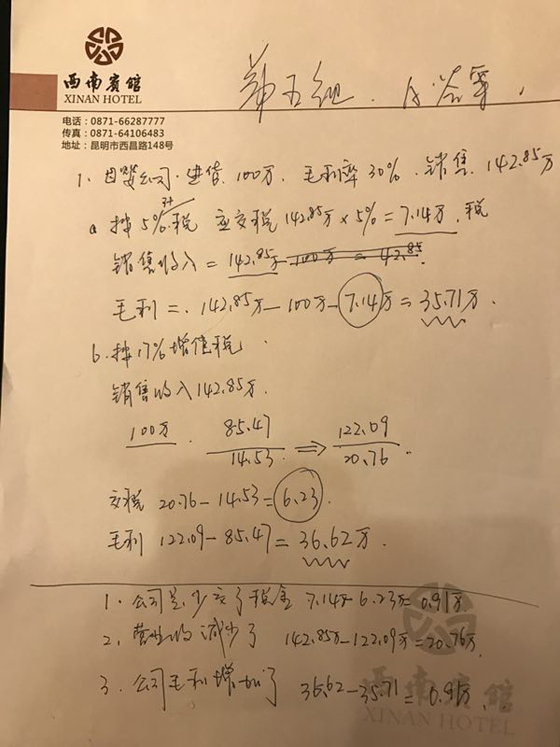 西南宾馆
XINAN HOTEL
电话：0871-66287777
传真：0871-64106483
地址：昆明市西昌路148号
第五组.
1、 公司.进货.100万，毛利率30%.销售.142.85万
a 按5% 税 应交税142.85万×5%=7.14万.税
销售收入=142.85万-100万=42.85.
毛利=.142.85万-100万-7.14万=35.71万.
b.按17%增值税.
销售收入142.85万.
100万 85.47/14.53 ⇒ 122.09/20.76.
交税 20.76-14.53=6.23.
毛利 122.09-85.47=36.62万.
1.公司 少交了税金 7.14万-6.23万=0.91万.
2、营业收减少了 142.85万-122.09万=20.76万.
3.公司毛利增加了 36.62-35.71=0.91万.
西南宾馆
XINAN HOTEL